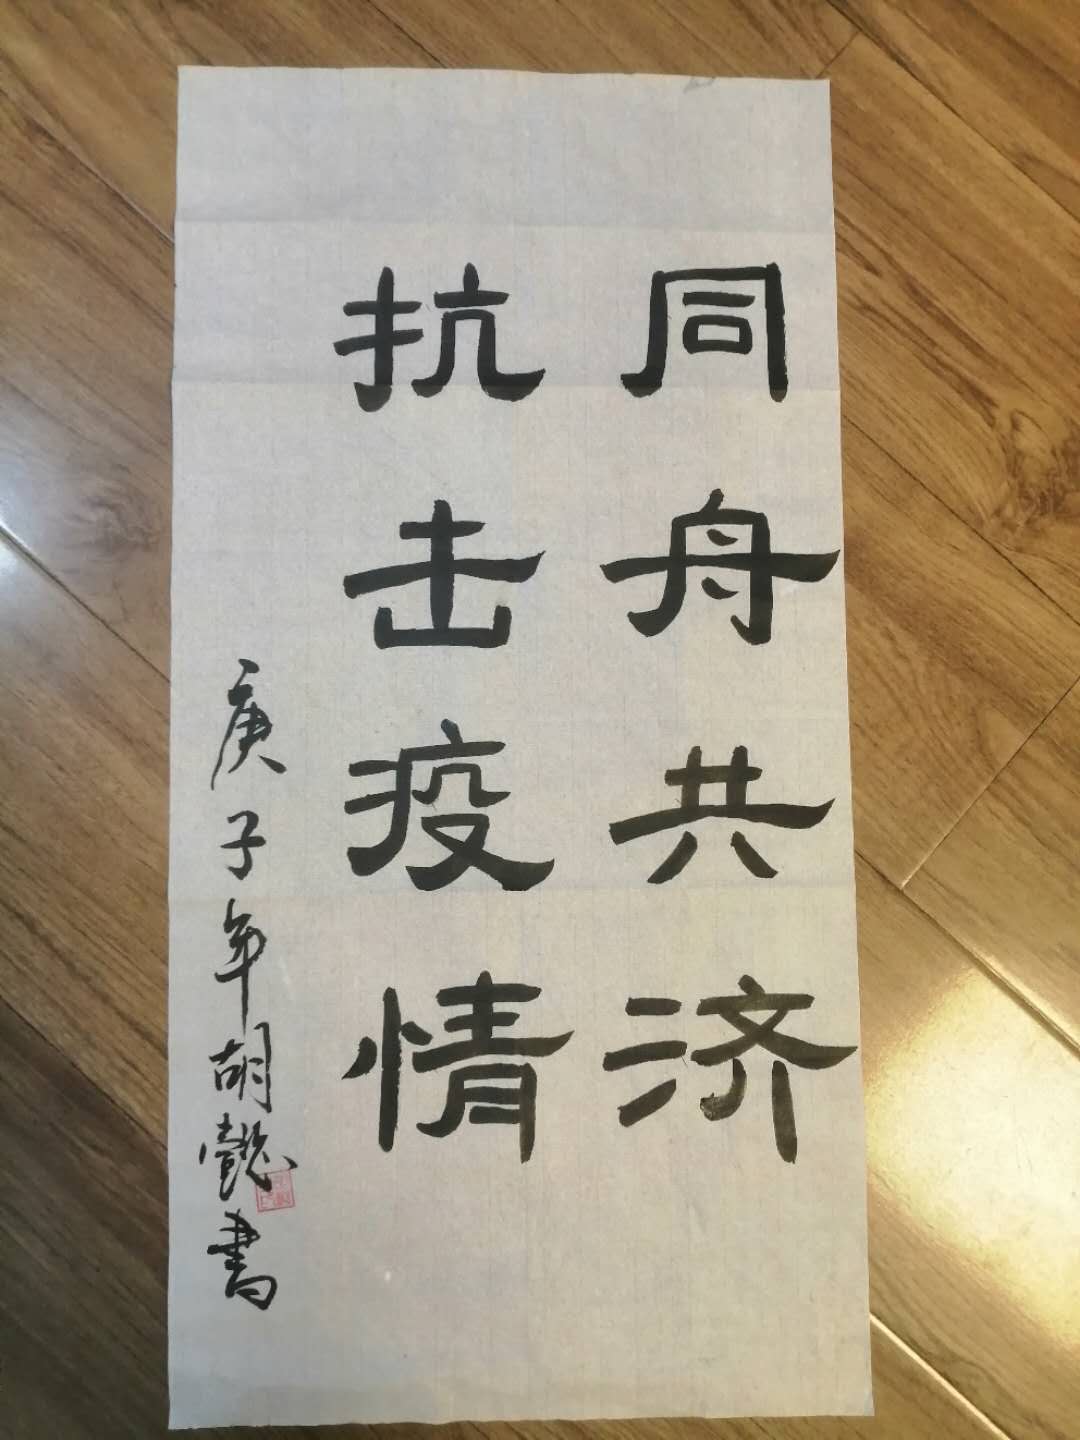 同舟共济
抗击疫情
庚子年胡懿书